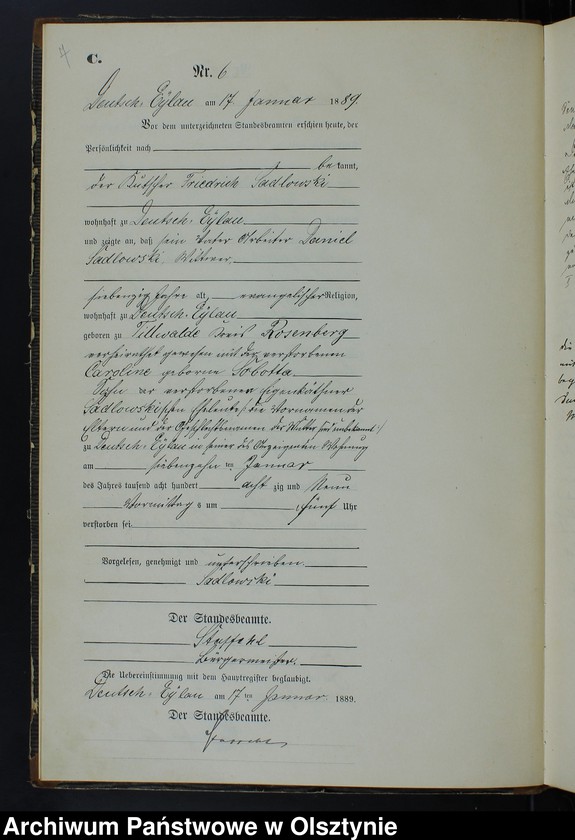 4
C.
Nr. 6
Deutsch-Eylau am 17 Januar 1889.
Vor dem unterzeichneten Standesbeamten erschien heute, der
Persönlichkeit nach
bekannt,
der Kutscher Friedrich Sadlowski
wohnhaft zu Deutsch-Eylau
und zeigte an, daß sein Vater Arbeiter Daniel
Sadlowski, Wittwer
siebenzig Jahre alt, evangelischer Religion,
wohnhaft zu Deutsch-Eylau
geboren zu Tillwalde Kreis Rosenberg
verheirathet gewesen mit der verstorbenen
Caroline geborne Sobotta
Sohn der verstorbenen Eigenkäthner
Sadlowskischen Eheleute (die Vornamen der
Eltern und der Geschlechtsnamen der Mutter sind unbekannt.)
zu Deutsch-Eylau in seiner des Anzeigenden Wohnung
am siebenzehn ten Januar
des Jahres tausend acht hundert acht zig und Neun
Vormittags um fünf Uhr
verstorben sei.
Vorgelesen, genehmigt und unterschrieben.
Sadlowski
Der Standesbeamte.
Bürgermeister.
Die Uebereinstimmung mit dem Hauptregister beglaubigt.
Deutsch-Eylau am 17 ten Januar 1889.
Der Standesbeamte.
Archiwum Państwowe w Olsztynie